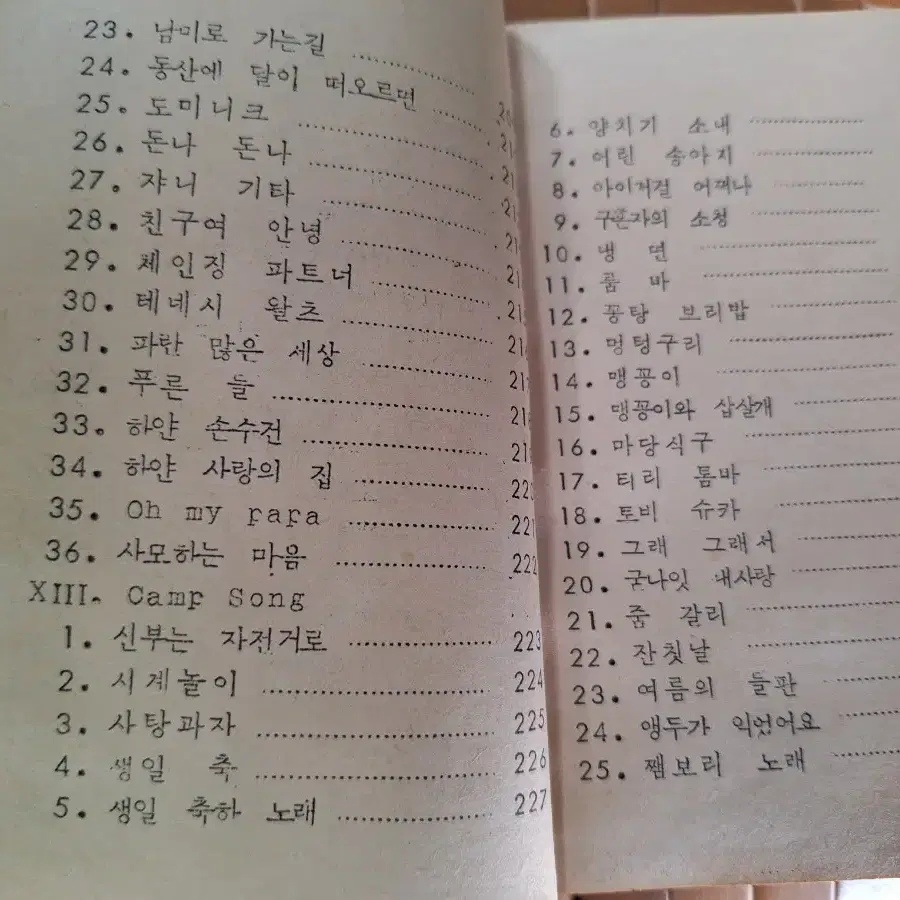 23. 남미로 가는길
24. 동산에 달이 떠오르면
25. 도미니크
26. 돈나 돈나
27. 쟈니 기타
28. 친구여 안녕
29. 체인징 파트너
30. 테네시 왈츠
31. 파란 많은 세상
32. 푸른 들
33. 하얀 손수건
34. 하얀 사랑의 집 220
35. Oh my papa 221
36. 사모하는 마음 222
XIII. Camp Song
1. 신부는 자전거로 223
2. 시계놀이 224
3. 사탕과자 225
4. 생일 축 226
5. 생일 축하 노래 227
6. 양치기 소내
7. 어린 송아지
8. 아이저걸 어쩌나
9. 구혼자의 소청
10. 냉 면
11. 룸 바
12. 꽁탑 보리밥
13. 멍텅구리
14. 맹꽁이
15. 맹꽁이와 삽살개
16. 마당식구
17. 티리 톰바
18. 토비 슈카
19. 그래 그래서
20. 굳나잇 내사랑
21. 줌 갈리
22. 잔칫날
23. 여름의 들판
24. 앵두가 익었어요
25. 쨈보리 노래